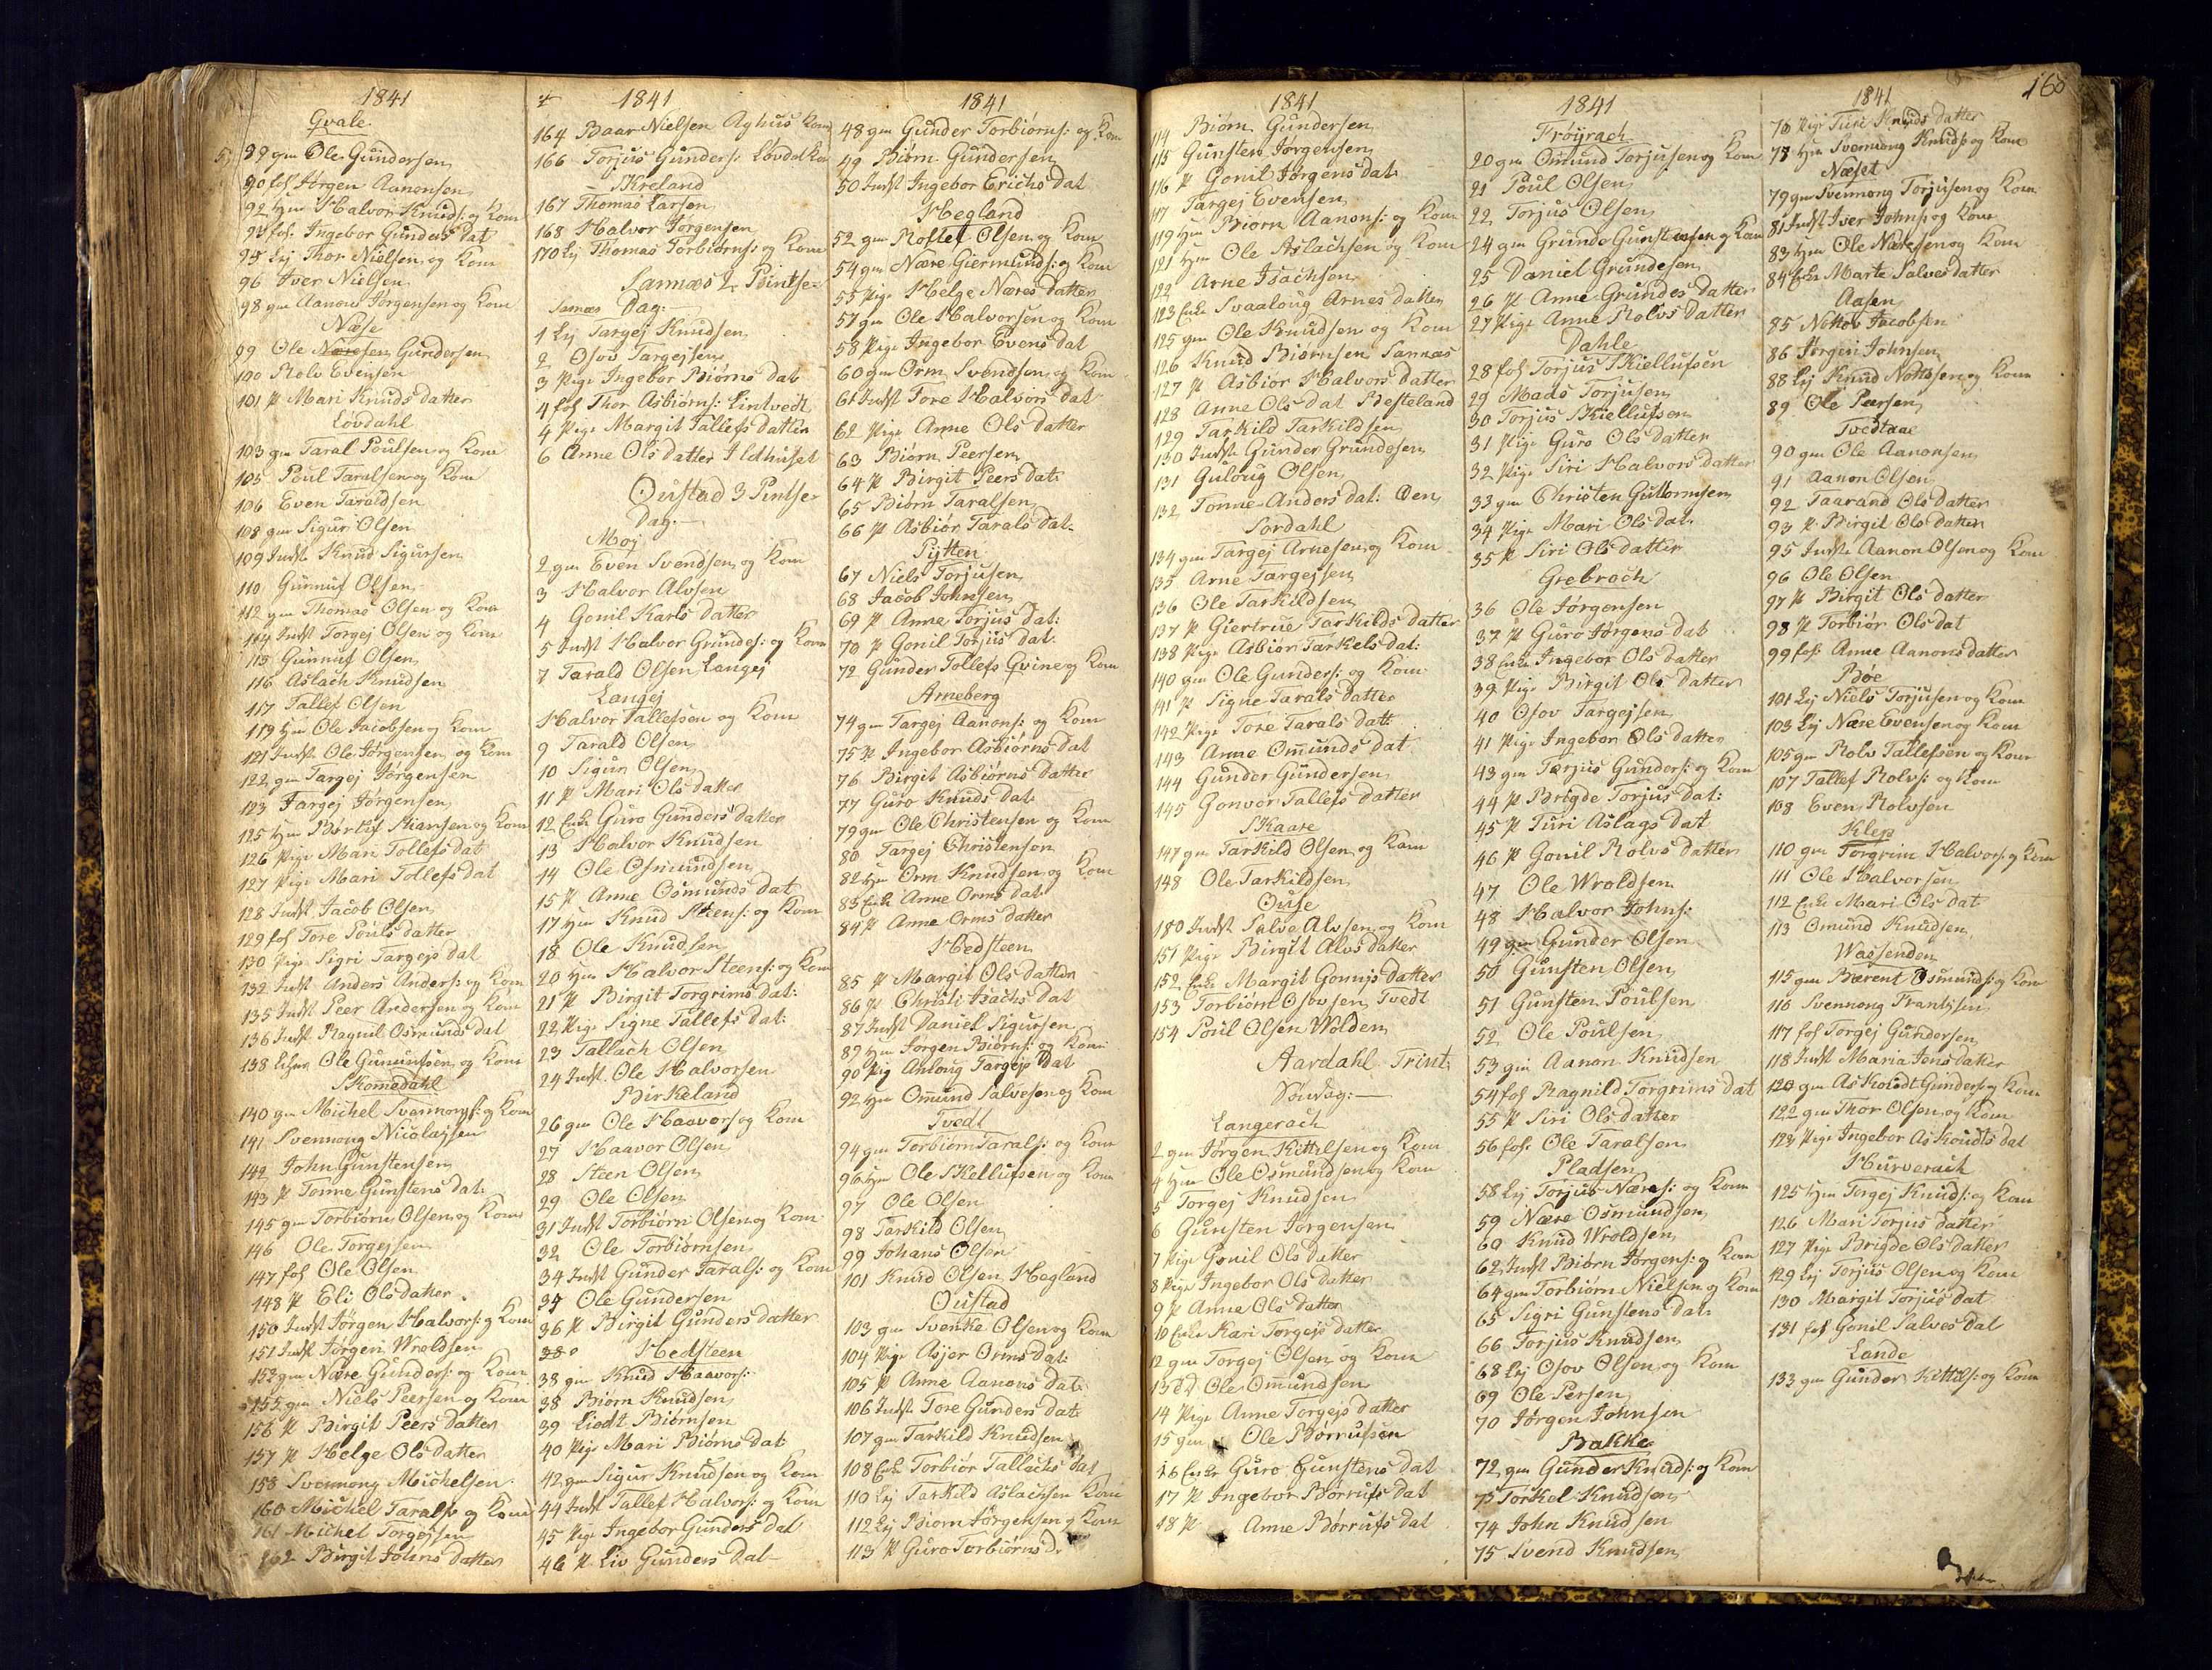 1841
Qvale
89 gm Ole Gundersen
90 fos Jörgen Aanonsen
92 Hm Halvor Knuds: og Kom
93 fos. Ingebor Gunders dat
95 Lej Thor Nielsen og Kom
96 Iver Nielsen
98 gm Aanon Jörgensen og Kom
Næse
99 Ole Næresen Gundersen
100 Rolv Evensen
101 P Mari Knuds datter
Lövdahl
103 gm Taral Poulsen og Kom
105 Poul Taralsen og Kom
106 Even Taraldsen
108 gm Sigur Olsen
109 Indst Knud Sigursen
110 Gunnuf Olsen
112 gm Thomas Olsen og Kom
114 Indst Torgej Olsen og Kom
115 Gunnuf Olsen
116 Aslach Knudsen
117 Tallef Olsen
119 Hm Ole Jacobsen og Kom
121 Indst Ole Jörgensen og Kom
122 gm Targej Jörgensen
123 Targej Jörgensen
125 Hm Börluf Stiansen og Kom
126 Pige Mari Tollefs dat
127 Pige Mari Tollefs dat
128 Indst Jacob Olsen
129 fos Tore Pouls datter
130 Pige Sigri Targejs dat
132 Indst Anders Anders: og Kom
135 Indst Peer Andersen og Kom
136 Indst Ragnil Osmunds dat
138 Ole Gunnufsen og Kom
Skomedahl
140 gm Michel Svennongs: og Kom
141 Svennong Nicolajsen
142 John Gunstensen
143 P Tonne Gunstens dat:
145 gm Torbiörn Olsen og Kom
146 Ole Torgejsen
147 fos Ole Olsen
148 P Eli Ols datter
150 Indst Jörgen Halvors: og Kom
151 Indst Jörgen Wroldsen
153 gm Nære Gunders: og Kom
155 gm Niels Peersen og Kom
156 P Birgit Peers datter
157 P Helge Ols datter
158 Svennong Michelsen
160 Michel Tarals: og Kom
161 Michel Torgejsen
162 Birgit Johns datter
1841
164 Baar Nielsen Aghus Kom
166 Torjus Gunders: Lövdal Kom
Skreland
167 Thomas Larsen
168 Halvor Jörgensen
170 Lej Thomas Torbiörns: og Kom
Sannæs 2 Pintse
Dag.
Sannæs
1 Lej Targej Knudsen
2 Osov Targejsen
3 Pige Ingebor Biörns dat
4 fos Thor Asbiörns: Lintvedt
4 Pige Margit Tallefs datter
6 Anne Ols datter Ildhuset
Oustad 3 Pintse
Dag.
Moj
2 gm Even Svendsen og Kom
3 Halvor Alvsen
4 Gonil Karls datter
5 Indst Halvor Grundes: og Kom
7 Tarald Olsen Langej
Langej
Halvor Tallefsen og Kom
9 Tarald Olsen
10 Sigur Olsen
11 P Mari Ols datter
12 Enke Guro Gunders datter
13 Halvor Knudsen
14 Ole Osmundsen
15 P Anne Osmunds dat
17 Hm Knud Steens: og Kom
18 Ole Knudsen
20 Hm Halvor Steens: og Kom
21 P Birgit Torgrims dat:
22 Pige Signe Tallefs dat:
23 Tallach Olsen
24 Indst. Ole Halvorsen
Birkeland
26 gm Ole Haavors og Kom
27 Haavor Olsen
28 Steen Olsen
29 Ole Olsen
31 Indst Torbiörn Olsen og Kom
32 Ole Torbiörnsen
34 Indst Gunder Tarals: og Kom
35 Ole Gundersen
36 P Birgit Gunders datter
Hedsteen
38 gm Knud Haavors:
38 Biorn Knudsen
39 Liodt Biörnsen
40 Pige Mari Biörns dat
42 gm Sigur Knudsen og Kom
44 Indst Tallef Halvors: og Kom
45 Pige Ingebor Gunders dat
46 P. Liv Gunders dat
1841
48 gm Gunder Torbiörns: og Kom
49 Biörn Gundersen
50 Indst Ingebor Erichs dat
Hegland
52 gm Roftef Olsen og Kom
54 gm Nære Giermunds: og Kom
55 Pige Helge Næres datter
57 gm Ole Halvorsen og Kom
58 Pige Ingebor Evens dat
60 gm Orm Svendsen og Kom
61 Indst Tore Halvors dat
62 Pige Anne Ols datter
63 Biörn Peersen
64 P Birgit Peers dat:
65 Biörn Taralsen
66 P. Asbiör Tarals dat.
Sytten
67 Niels Torjusen
68 Jacob Johnsen
69 P Anne Torjus dat:
70 P Gonil Torjus dat.
72 Gunder Tollefs Qvine og Kom
Arneberg
74 gm Targej Aanons: og Kom
75 P Ingebor Asbiörns dat
76 Birgit Asbiörns datter
77 Guro Knuds dat:
79 gm Ole Christensen og Kom
80 Targej Christenson
82 Hm Orm Knudsen og Kom
83 Enke Anne Orms dat
84 P Anne Orms datter
Hedsteen
85 P Margit Ols datter
86 P Christi Isachs dat
87 Indst Daniel Sigursen
89 Hm Jörgen Biörns: og Kom
90 Pig Anlaug Targejs dat
92 Hm Omund Salvesen og Kom
Tvedt
94 gm Torbiörn Tarals: og Kom
96 Hm Ole Skellufsen og Kom
97 Ole Olsen
98 Tarkild Olsen
99 Johans Olsen
101 Knud Olsen Hegland
Oustad
103 gm Svenke Olsen og Kom
104 Pige Asjer Orms dat:
105 P Anne Aanons dat:
106 Indst Tore Gunders dat:
107 gm Tarkild Knudsen
108 Enke Torbiör Tallachs dat
110 Lej Tarkild Aslachsen Kom
112 Lej Biorn Jörgensen og Kom
113 P Guro Torbiörns d.
1841
114 Biörn Gundersen
115 Gunsten Jörgensen
116 P Gonil Jörgens dat.
117 Targej Evensen
119 Hm Biörn Aanons: og Kom
121 Hm Ole Aslachsen og Kom
122 Arne Isachsen
123 Enke Svaaloug Arnes datter
125 gm Ole Knudsen og Kom
126 Knud Biörnsen Sannæs
127 P Asbiör Halvors datter
128 Anne Ols dat Besteland
129 Tarkild Tarkildsen
130 Indst Gunder Grundesen
131 Guloug Olsen
132 Tonne Anders dat: Öen
Sordahl
134 gm Targej Arnesen og Kom
135 Arne Targejsen
136 Ole Tarkildsen
137 P Giertrue Tarkilds datter
138 Pige Asbiör Tarkels dat:
140 gm Ole Gunders: og Kom
141 P Signe Tarals datter
142 Pige Tore Tarals datt
143 Anne Omunds dat
144 Gunder Gundersen
145 Gonvor Tallefs datter
Skaare
147 gm Tarkild Olsen og Kom
148 Ole Tarkildsen
Ouse
150 Indst Salve Alvsen og Kom
151 Pige Birgit Alvs datter
152 Enke Margit Gonnys datter
153 Torbiörn Osovsen Tvedt
154 Poul Olsen Wolden
Aardahl Trint:
Söndag:
Langerach
2 gm Jörgen Kittilsen og Kom
4 Hm Ole Osmundsen og Kom
5 Torgej Knudsen
6 Gunsten Jörgensen
7 Pige Gonil Ols datter
8 Pige Ingebor Ols datter
9 P Anne Ols datter
10 Enke Kari Torgejs datter
12 gm Torgej Olsen og Kom
13 Ole Omundsen
14 Pige Anne Torgejs datter
15 gm Ole Börrufsen
16 Enke Guro Gunstens dat
17 P Ingebor Börrufs dat
18 P Anne Börrufs dat
1841
Fröyrach
20 gm Osmund Torjusen og Kom
21 Poul Olsen
22 Torjus Olsen
24 gm Grunde Gunstensen og Kom
25 Daniel Grundesen
26 P Anne Grundes datter
27 Pige Anne Rolvs datter
Dahle
28 fos Torjus Skiellufsen
29 Mads Torjusen
30 Torjus Skiellufsen
31 Pige Guro Ols datter
32 Pige Siri Halvors datter
33 gm Christen Guttormsen
34 Pige Mari Ols dat.
35 P Siri Ols datter
Grebroch
36 Ole Jörgensen
37 P Guro Jörgens dat
38 Enke Ingebor Ols datter
39 Pige Birgit Ols datter
40 Osov Targejsen
41 Pige Ingebor Ols datter
43 gm Torjus Gunders: og Kom
44 P Brigde Torjus dat:
45 P Turi Aslags dat
46 P Gonil Rolvs datter
47 Ole Wroldsen
48 Halvor Johns:
49 gm Gunder Olsen
50 Gunsten Olsen
51 Gunsten Poulsen
52 Ole Poulsen
53 gm Aanon Knudsen
54 fos Ragnild Torgrims dat
55 P Siri Ols datter
56 fos. Ole Taralsen
Pladsen
58 Lej Torjus Næres: og Kom
59 Nære Osmundsen
60 Knud Wroldsen
62 Indst Biörn Jörgens: og Kom
64 gm Torbiörn Nielsen og Kom
65 Sigri Gunstens dat:
66 Torjus Knudsen
68 Lej Osov Olsen og Kom
69 Ole Persen
70 Jörgen Johnsen
Bakke
72 gm Gunder Knuds: og Kom
73 Torkel Knudsen
74 John Knudsen
75 Svend Knudsen
160
1841
76 Pige Turi Knuds datter
78 Hm Svennong Knuds: og Kom
Næset
79 gm Svennong Torjusen og Kom
81 Indst Iver Johns: og Kom
83 Hm Ole Næresen og Kom
84 Enke Marte Salves datter
Aasen
85 Nottov Jacobsen
86 Jörgen Johnsen
88 Lej Knud Nottosen og Kom
89 Ole Peersen
Tvedtaae
90 gm Ole Aanonsen
91 Aanon Olsen
92 Taarand Ols datter
93 P Birgit Ols datter
95 Indst Aanon Olsen og Kom
96 Ole Olsen
97 P Birgit Ols datter
98 P Torbiör Ols dat
99 fos Anne Aanons datter
Böe
101 Lej Niels Torjusen og Kom
103 Lej Nære Evensen og Kom
105 gm Rolv Tallefsen og Kom
107 Tallef Rolvs: og Kom
108 Even Rolvsen
Klep
110 gm Torgrim Halvors: og Kom
111 Ole Halvorsen
112 Enke Mari Ols dat
113 Omund Knudsen
Wassenden
115 gm Bærent Osmunds: og Kom
116 Svennong Frantssen
117 fos Torgej Gundersen
118 Indst Maria Jens datter
120 gm Askoudt Gunders: og Kom
122 gm Thor Olsen og Kom
123 Pige Ingebor Askoudts dat
Hurverach
125 Hm Torgej Knuds: og Kom
126 Mari Torjus datter
127 Pige Brigde Ols datter
129 Lej Torjus Olsen og Kom
130 Margit Torjus dat
131 fos Gonil Salves dat
Lande
133 gm Gunder Kittils: og Kom